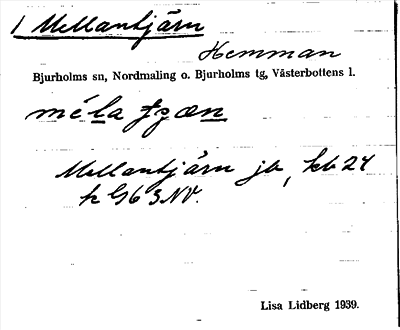 1 Mellantjärn
Hemman
Bjurholms sn, Nordmaling o. Bjurholms tg, Västerbottens l.
Mellantjärn jb, kb 24
k G63NV.
Lisa Lidberg 1939.